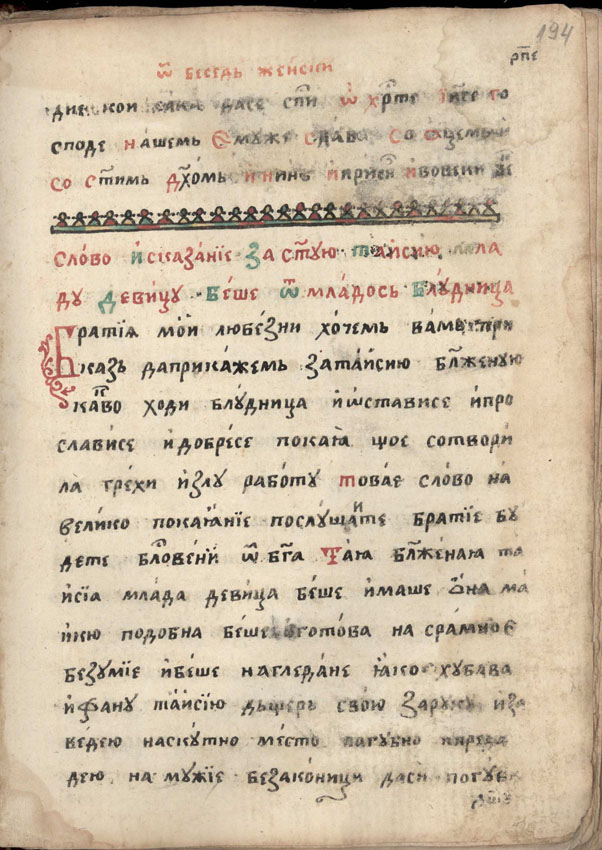 194
рп҃е
ѿ беседъ женсіи
дие кои како дасе сп҃и ѡ хрⷭ҇те іи҃се го
споде нашемь Емуже слава Со ѿцемь и
со ст҃имь дх҃омь и нинꙗ и присн҃ и вовеки
слово и҆сказа́нїе За ст҃ую та҆исию мла
ду девицу беше ѿ младось блу́дница
Братїѧ мои любе́зни хо́чемь вамь при
казь даприка́жемь затаи҆сию бл҃женую
како ходи блу́дница и҆ѡставⷭ҇исе и҆про
славⷭ҇исе и҆добресе покаꙗ що́е сотвори
ла грехи и҆злу рабо́ту това́е слово на
велико покаꙗ́нїе послуша́ите братїе бу
дете бл҃гове́ни ѿ бг҃а Таꙗ бл҃женаꙗ та
и҆сїа млада деви́ца беше и҆маше ѻна ма
и҆кю подобна беше ѡгото́ва на сра́мное
безу́мїе и҆беше нагледа́не ꙗ҆ко хубава
и҆фану таи҆сїю дъщерь свою За руку иза
ведею наскутно место пагубно ипреда
дею на мужїе безако́ници даси погуби
дш҃у